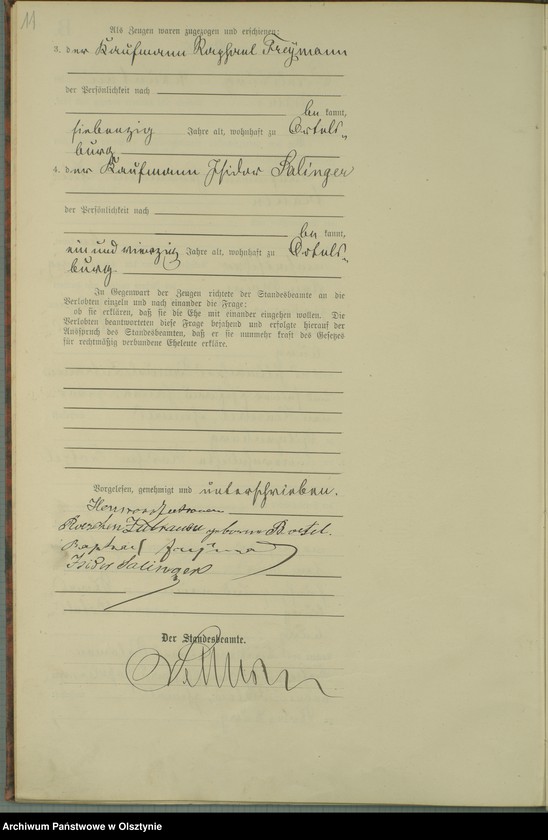 11
Als Zeugen waren zugezogen und erschienen:
3. der Kaufmann Raphael Freymann
der Persönlichkeit nach
be kannt,
siebenzig Jahre alt, wohnhaft zu Ortels-
burg
4. der Kaufmann Isidor Salinger
der Persönlichkeit nach
be kannt,
ein und vierzig Jahre alt, wohnhaft zu Ortels-
burg.
In Gegenwart der Zeugen richtete der Standesbeamte an die
Verlobten einzeln und nach einander die Frage:
ob sie erklären, daß sie die Ehe mit einander eingehen wollen. Die
Verlobten beantworteten diese Frage bejahend und erfolgte hierauf der
Ausspruch des Standesbeamten, daß er sie nunmehr kraft des Gesetzes
für rechtmäßig verbundene Eheleute erkläre.
Vorgelesen, genehmigt und unterschrieben.
geborene
Raphael Freymann
Isidor Salinger
Der Standesbeamte.
Archiwum Państwowe w Olsztynie